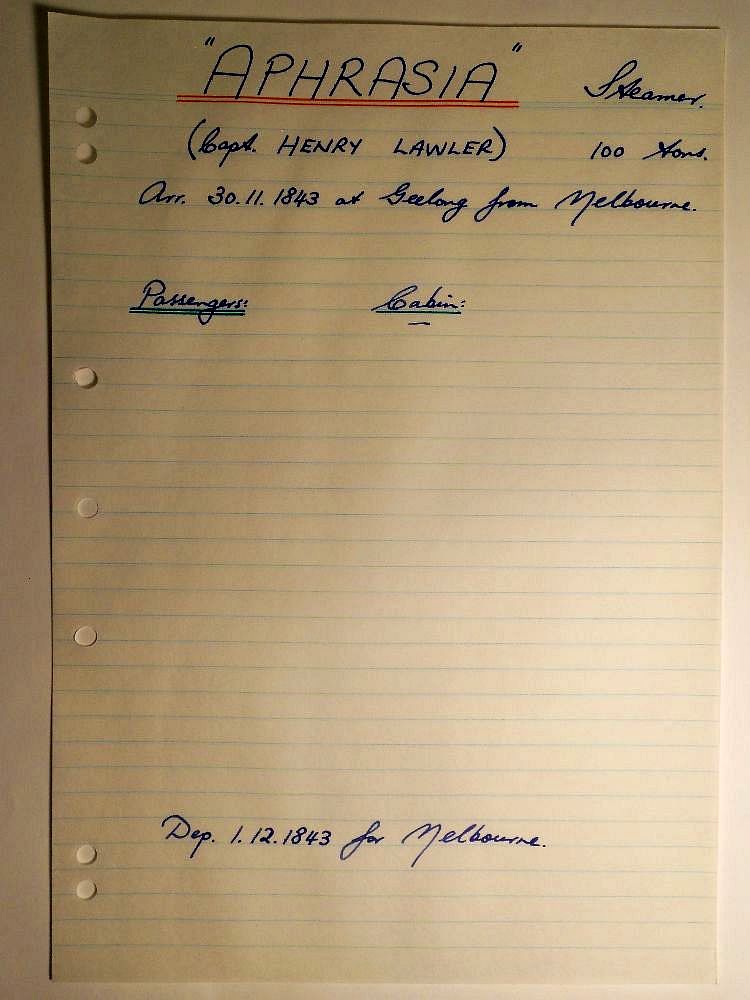 "APHRASIA" Steamer.
(Capt. HENRY LAWLER) 100 tons.
Arr. 30.11.1843 at Geelong from Melbourne.
Passengers: Cabin:
Dep. 1.12.1843 for Melbourne.